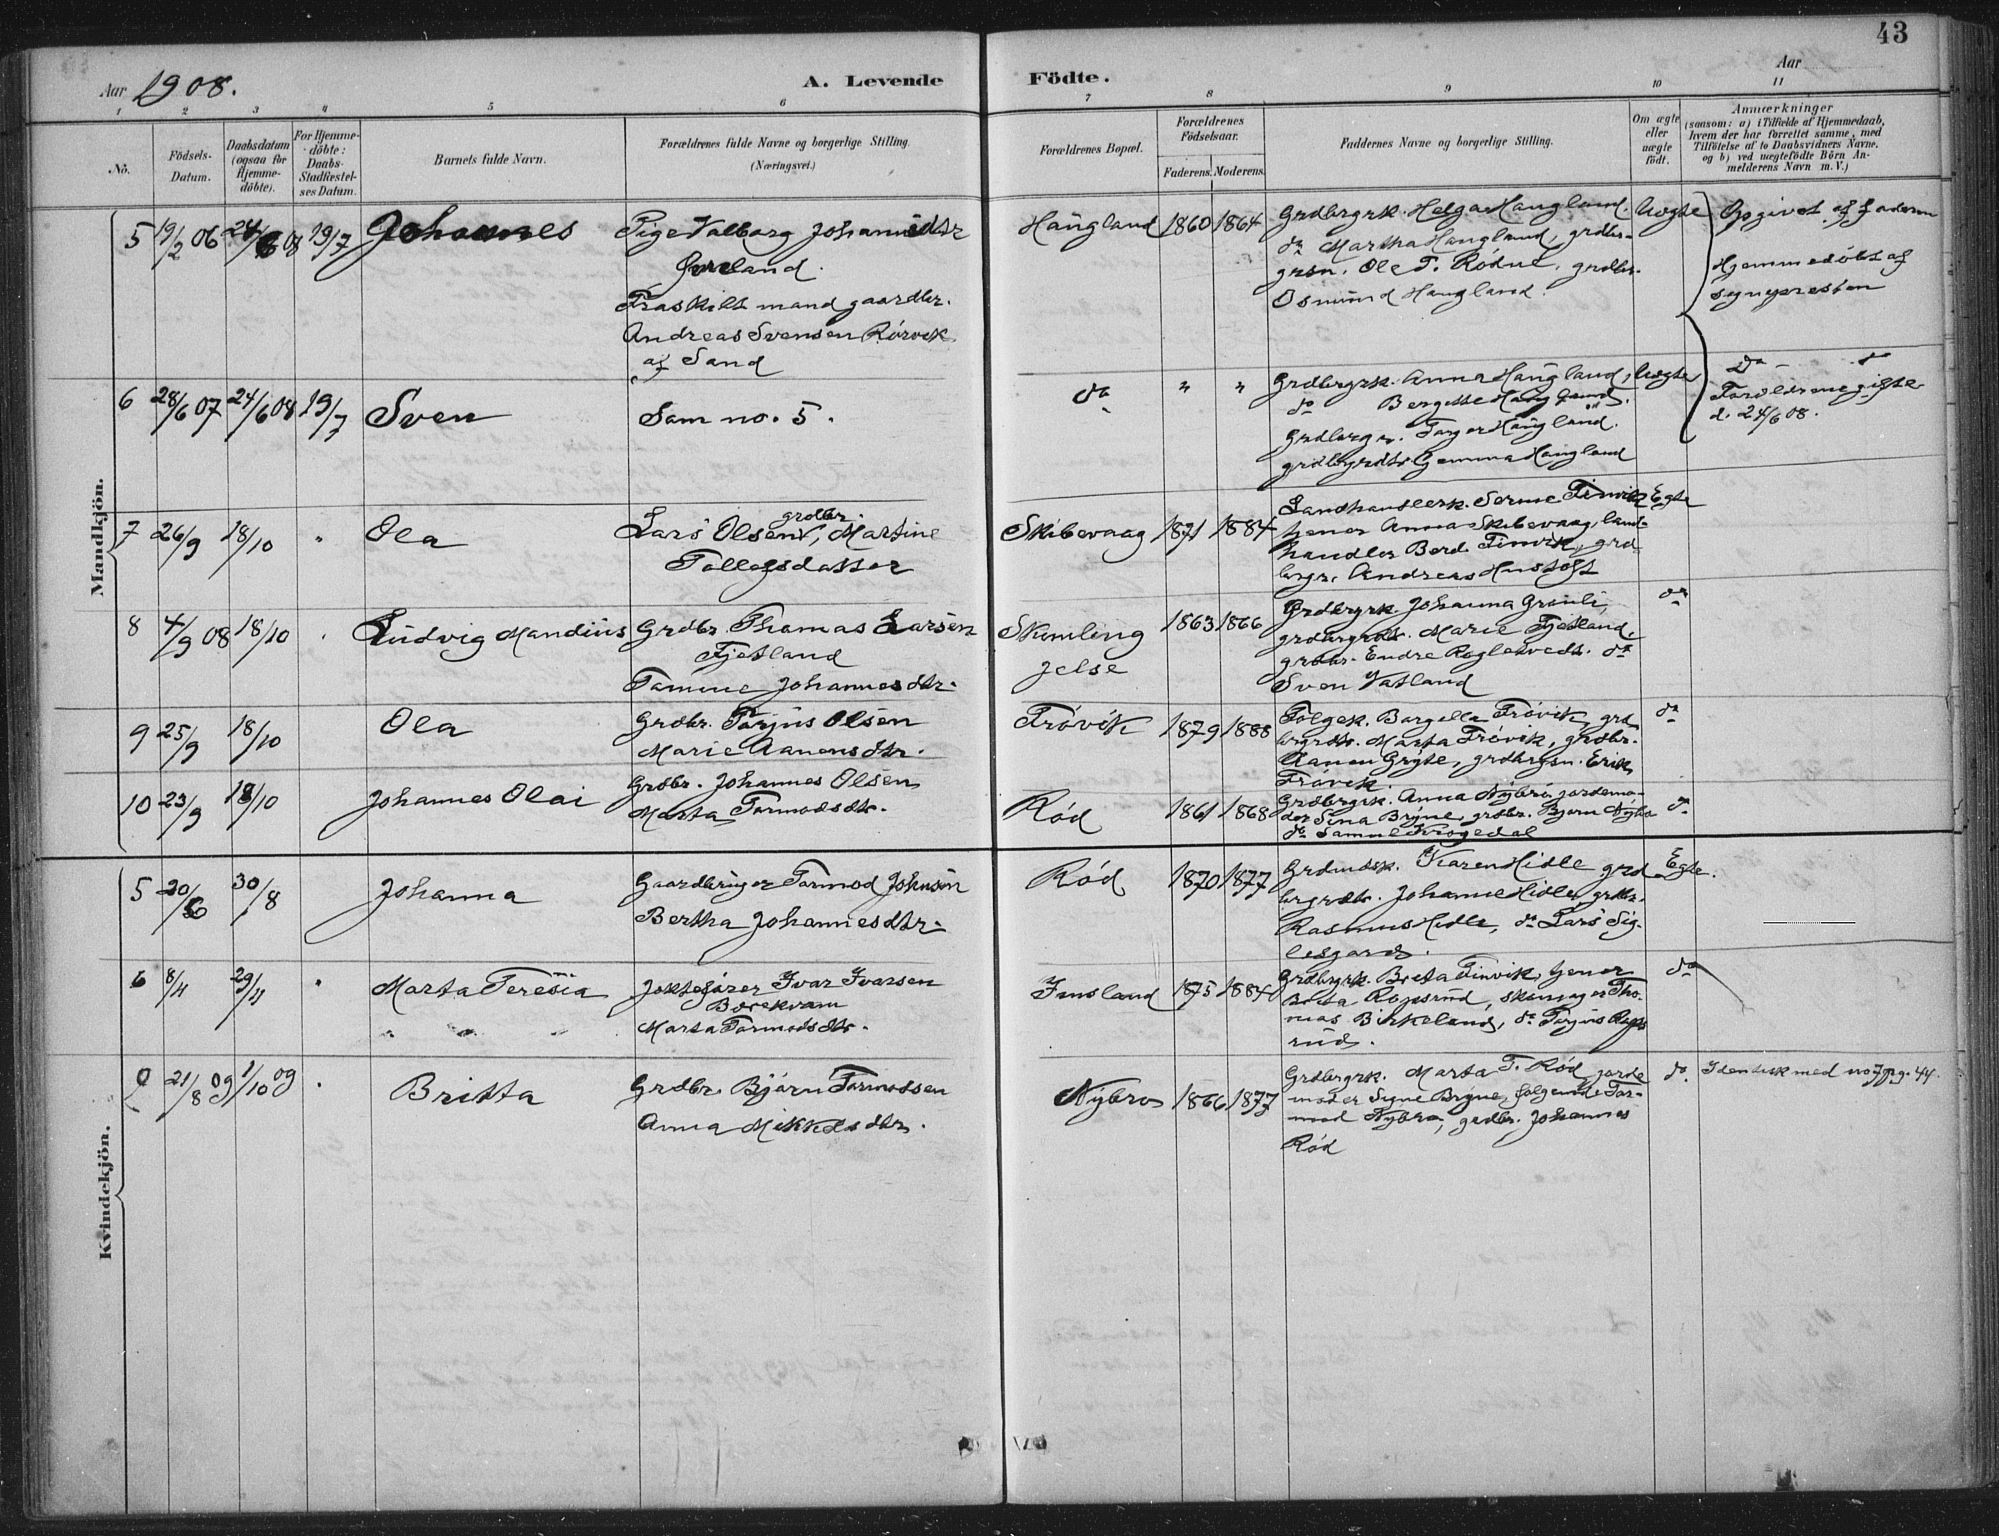 43
Aar 1908.
A. Levende Födte.
Aar
1 2 3 4 5 6 7 8 9 10 11
No.
Födsels-
Datum.
Daabsdatum
(ogsaa for
Hjemme-
döbte).
For Hjemme-
döbte:
Daabs-
Stadfæstel-
ses Datum.
Barnets fulde Navn.
Forældrenes fulde Navne og borgerlige Stilling.
(Næringsvei.)
Forældrenes Bopæl.
Forældrenes
Födselsaar.
Faderens. Moderens.
Faddernes Navne og borgerlige Stilling.
Om ægte
eller
uægte
födt.
Anmærkninger
(saasom: a) i Tilfælde af Hjemmedaab,
hvem der har forrettet samme, med
Tilföielse af to Daabsvidners Navne,
og b) ved uægtefödte Börn An-
melderens Navn m. V.)
Mandkjön.
5 19/2 06 24/6 08 19/7 Johannes
Pige Valborg Johannesdtr
Fraskilt mand gaardbr.
Andreas Svensen Rörvik
af Sand
Haugland 1860 1864
Grdbrgrk. Helga Haugland.
do Martha Haugland, grdbr-
grsn. Ole T. Rödne, grdbr.
Osmund Haugland.
Uægte
Opgivet af faderen
Hjemmedöbt af
sognepresten
6 28/6 07 24/6 08 19/7 Sven
Som no. 5.
do " "
Grdbrgrk. Anna Haugland,
do Bergitte Haugland.
Grdbrgr. Torger Haugland.
grdbrgrdtr Gemma Haugland
Uægte
Do - do
Foreldrene gifte
d. 24/6 08.
7 26/9 18/10 " Ola
Lars Olsen, grdbr. Martine
Tollefsdatter
Skibevaag 1871 1884
Landhandlerk. Serine Finvik
tjener Anna Skibevaag, land-
handler Berd. Finvik, grd
brgr. Andreas Hustoft
Egte
8 4/9 08 18/10 " Ludvig Mandius
Grdbr. Thomas Larsen
Fjetland
Tamine Johannesdtr.
Skimling
Jelse
1863 1866
Grdbrgrk. Johanna Grönli,
grdbrgrdtr. Marie Fjetland,
grdbr. Endre do
Sven Vatland
do
9 25/9 18/10 Ola
Grdbr. Torjus Olsen
Marie Aanensdtr.
Frövik 1879 1888
Fölgek. Borgella Frövik, grd
brgrdtr. Marta Frövik, grdbr.
Aanen Gryte, grdbrgsn. Erik
Frövik.
do
10 23/9 18/10 Johannes Olai
Grdbr. Johannes Olsen
Marta Tormodsdtr.
Röd 1861 1868
Grdbrgrk. Anna Nybru, jordemo-
der Sina Bryne, grdbr. Bjørn Nybro
do
do
Kvindekjön.
5 20/6 30/8 Johanna
Gaardbruger Tormod Johnsen
Bertha Johannesdtr.
Röd 1870 1877
Grdmdsk. Karen Hidle grd
brgrdtr. Johanne Hidle, grdbr.
Rasmus Hidle, do Lars Sig-
Egte.
6 8/4 29/4 " Marta Teresia
Jektefører Ivar Ivarsen
Marta Tormodsdtr.
Imsland 1875 1884
Grdbrgrk. Berta Finvik, tjener
Berta Ropsrud, skomager Tho-
mas Birkeland, do Torjus Rops
rud.
do
21/8 09 1/10 09 " Britta
Grdbr. Bjørn Tormodsen
Anna Mikkelsdtr.
Nybro 1866 1877
Grdbrgrk. Marta T. Röd, jorde
moder Signe Bryne, fölgemd Tor-
mod Nybro, grdbr. Johannes
Röd
do
Identisk med no 7 pg. 44.